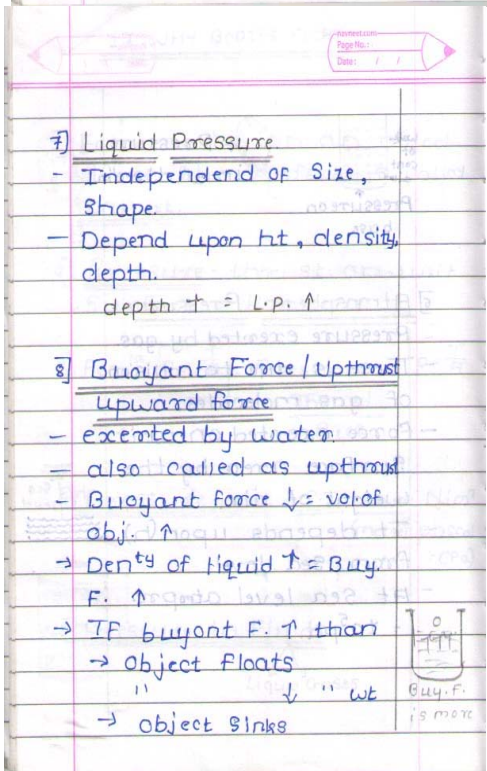 nzsnext.com
Page No.:
Date: / /
7] Liquid Pressure
- Independend OF Size,
Shape.
- Depend upon ht, density,
depth.
depth + = L.P. ↑
8] Buoyant Force / Upthrust
upward force
- exerted by water
- also called as upthrust
- Buoyant force ↓ = vol. of
obj. ↑
→ Den^ty of liquid ↑ = Buy.
F. ↑
→ IF buyont F. ↑ than
→ object Floats
" ↓ " wt
→ object Sinks
Buy. F.
is more